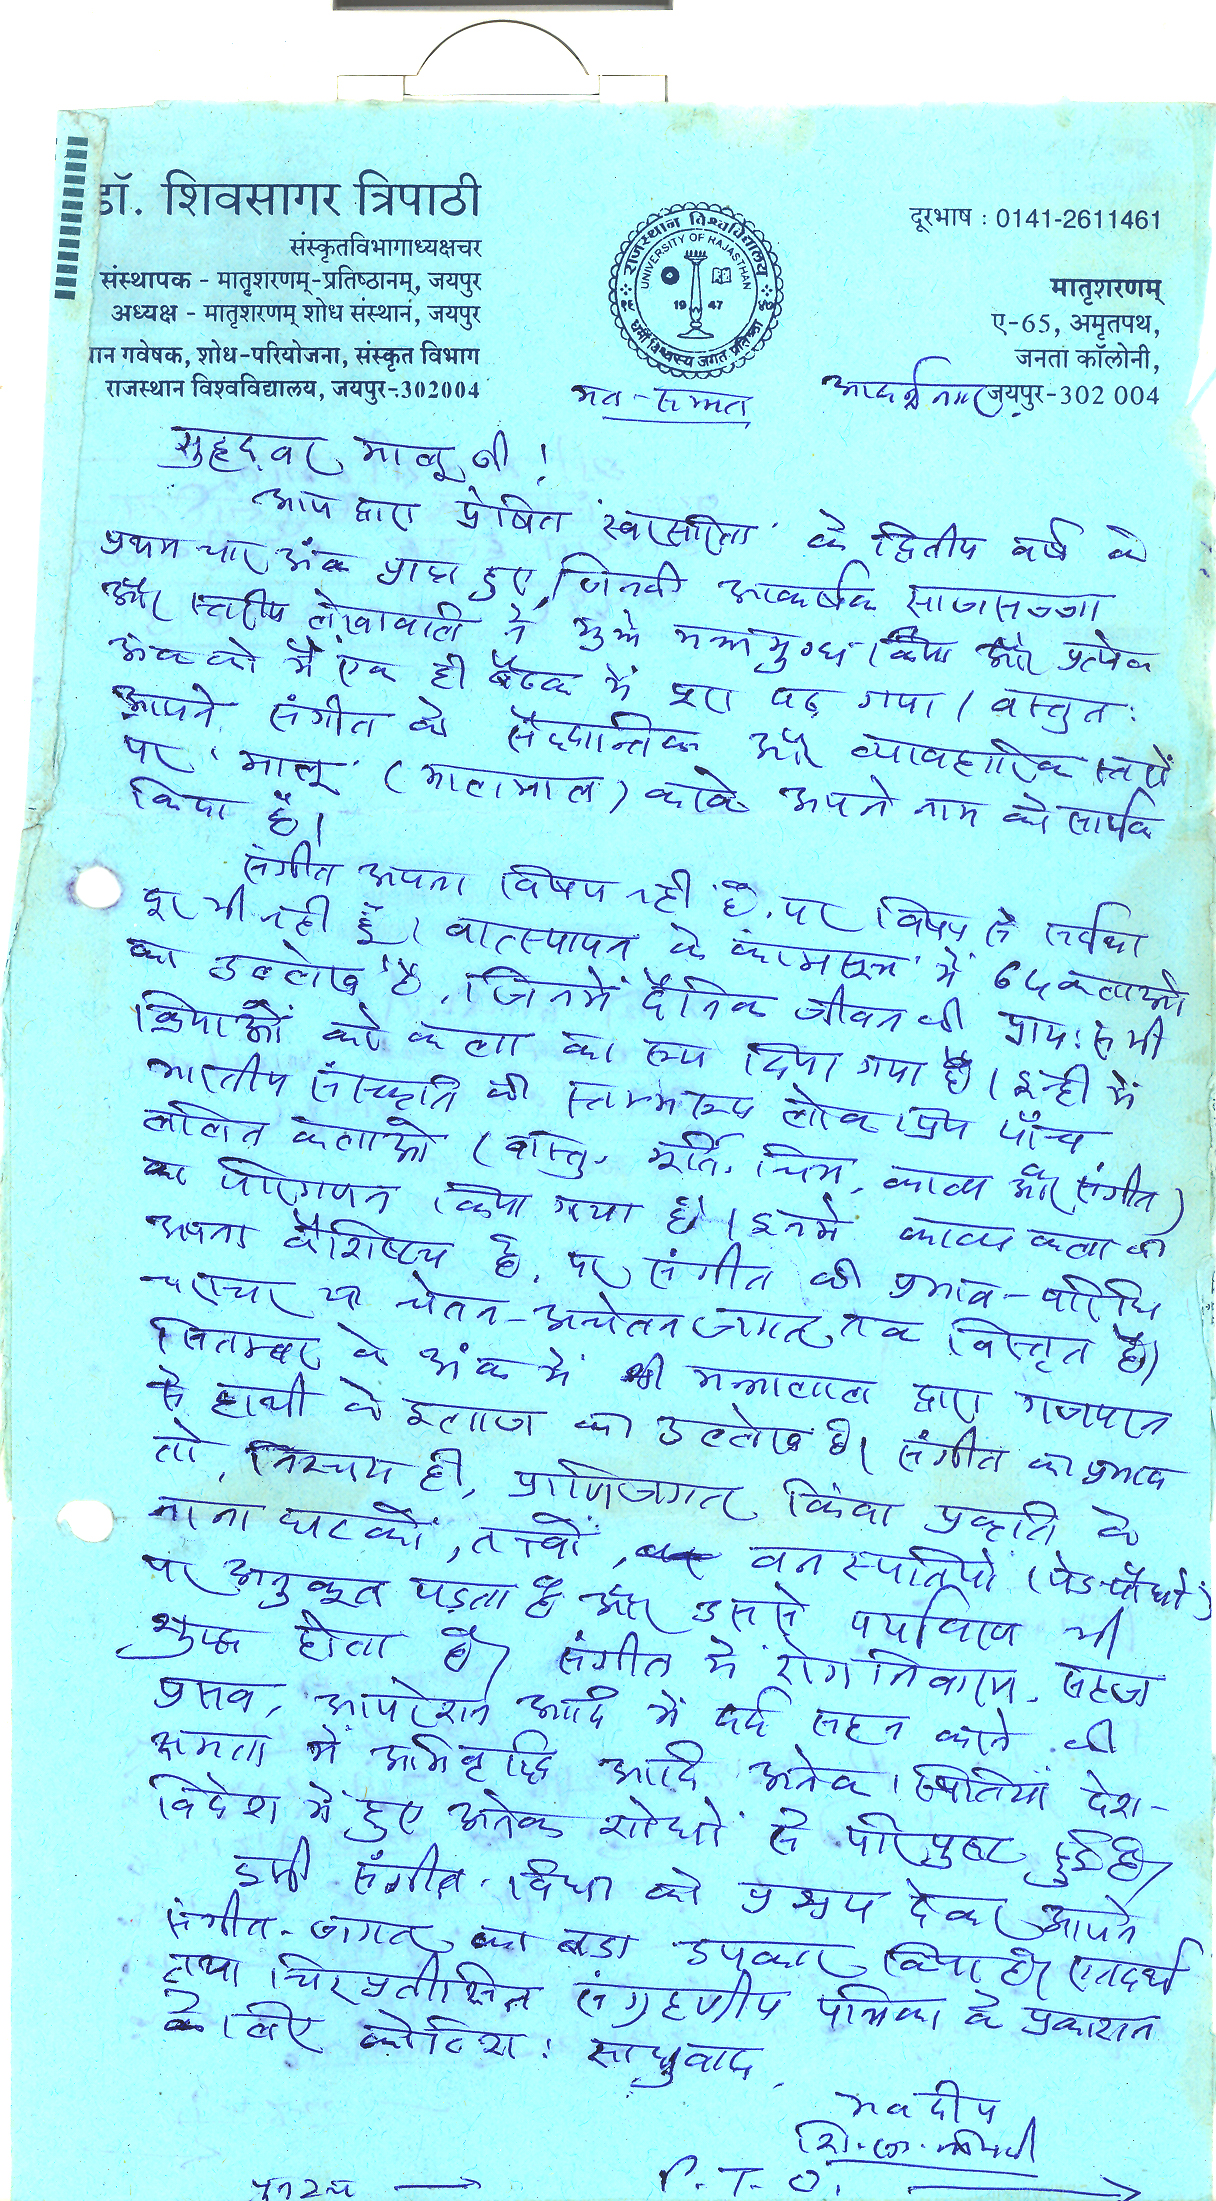 डॉ. शिवसागर त्रिपाठी
संस्कृतविभागाध्यक्षचर
संस्थापक - मातृशरणम्-प्रतिष्ठानम्, जयपुर
अध्यक्ष - मातृशरणम् शोध संस्थानं, जयपुर
ान गवेषक, शोध-परियोजना, संस्कृत विभाग
राजस्थान विश्वविद्यालय, जयपुर-302004
राजस्थान विश्वविद्यालय
UNIVERSITY OF RAJASTHAN
१९ 19 47 ४७
धर्मो विश्वस्य जगतः प्रतिष्ठा
दूरभाष : 0141-2611461
मातृशरणम्
ए-65, अमृतपथ,
जनता कॉलोनी,
आदर्श नगर, जयपुर-302 004
मत-सम्मत
सुहृद्वर मालू जी !
आप द्वारा प्रेषित 'स्वरसरिता' के द्वितीय वर्ष के
प्रथम चार अंक प्राप्त हुए, जिनकी आकर्षक साजसज्जा
और स्तरीय लेखावलि ने मुझे मन्त्रमुग्ध किया और प्रत्येक
अंक को मैं एक ही बैठक में पूरा पढ़ गया। वस्तुतः
आपने संगीत के सैद्धान्तिक और व्यावहारिक स्तरों
पर 'मालू' (मालामाल) करके अपने नाम को सार्थक
किया है।
संगीत अपना विषय नहीं है, पर विषय से सर्वथा
दूर भी नहीं हूँ। वात्स्यायन के 'कामसूत्र' में 64 कलाओं
का उल्लेख है, जिनमें दैनिक जीवन की प्रायः सभी
क्रियाओं को कला का रूप दिया गया है। इन्हीं में
भारतीय संस्कृति की स्तम्भरूप लोकप्रिय पाँच
ललित कलाओं (वास्तु, मूर्ति, चित्र, काव्य और संगीत)
का परिगणन किया गया है। इनमें काव्य कला का
अपना वैशिष्ट्य है, पर संगीत की प्रभाव-परिधि
चराचर या चेतन-अचेतन जगत् तक विस्तृत है।
सितम्बर के अंक में श्री मन्नालाल द्वारा गजपरन
से हाथी के इलाज का उल्लेख है। संगीत का प्रभाव
तो, निश्चय ही, प्राणिजगत् किंवा प्रकृति के
नाना घटकों, तत्त्वों, वनस्पतियों (पेड़-पौधों)
पर अनुकूल पड़ता है और उससे पर्यावरण भी
शुद्ध होता है। संगीत में रोग निवारण, सहज
प्रसव, आपरेशन आदि में दर्द सहन करने की
क्षमता में अभिवृद्धि आदि अनेक स्थितियां देश-
विदेश में हुए अनेक शोधों से परिपुष्ट हुई है।
इसी संगीत-विधा को प्रश्रय देकर आपने
संगीत-जगत् का बड़ा उपकार किया है। एतदर्थ
तथा चिरप्रतीक्षित संग्रहणीय पत्रिका के प्रकाशन
के लिए कोटिशः साधुवाद,
भवदीय
शि. सा. त्रिपाठी
पुनश्च → P.T.O. →